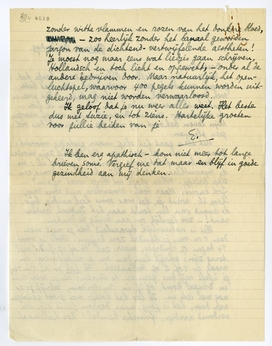 zonder witte vlammen en rozen van het bonzend bloed,
en zoo heerlijk zonder het banaal geworden
jargon van de dichtend-vertwijfelende aestheten!
Je moest nog maar eens wat liedjes gaan schrijven,
Hollandsch en toch licht en opgewekt, onder al de
andere bedrijven door. Maar natuurlijk, het open-
luchtspel, waarvoor 400 pegels kunnen worden uit-
gekeerd, mag niet worden verwaarloosd.
Ik geloof dat je nu weer alles weet. Het beste
dus met Luzie, en tot ziens. Hartelijke groeten
voor jullie beiden van je
E.
Ik ben erg apathisch – kom niet meer tot lange
brieven soms. Vergeef me dat maar en blijf in goede
gezindheid aan mij denken.